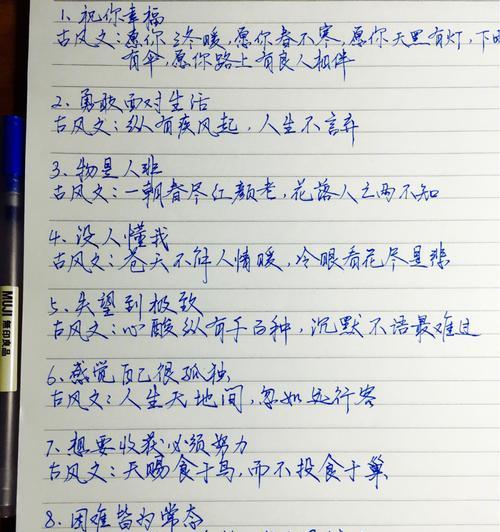 1、祝你幸福
古风文：愿你冬暖，愿你春不寒，愿你天黑有灯，下
有伞，愿你路上有良人相伴
2、勇敢面对生活
古风文：纵有疾风起，人生不言弃
3、物是人非
古风文：一朝春尽红颜老，花落人亡两不知
4、没人懂我
古风文：苍天不解人情暖，冷眼看花尽是悲
5、失望到极致
古风文：心酸纵有千百种，沉默不语最难过
6、感觉自己很孤独
古风文：人生天地间，忽如远行客
7、想要收获必须努力
古风文：天赐食于鸟，而不投食于巢
8、困难皆为常态
MUJI 無印良品